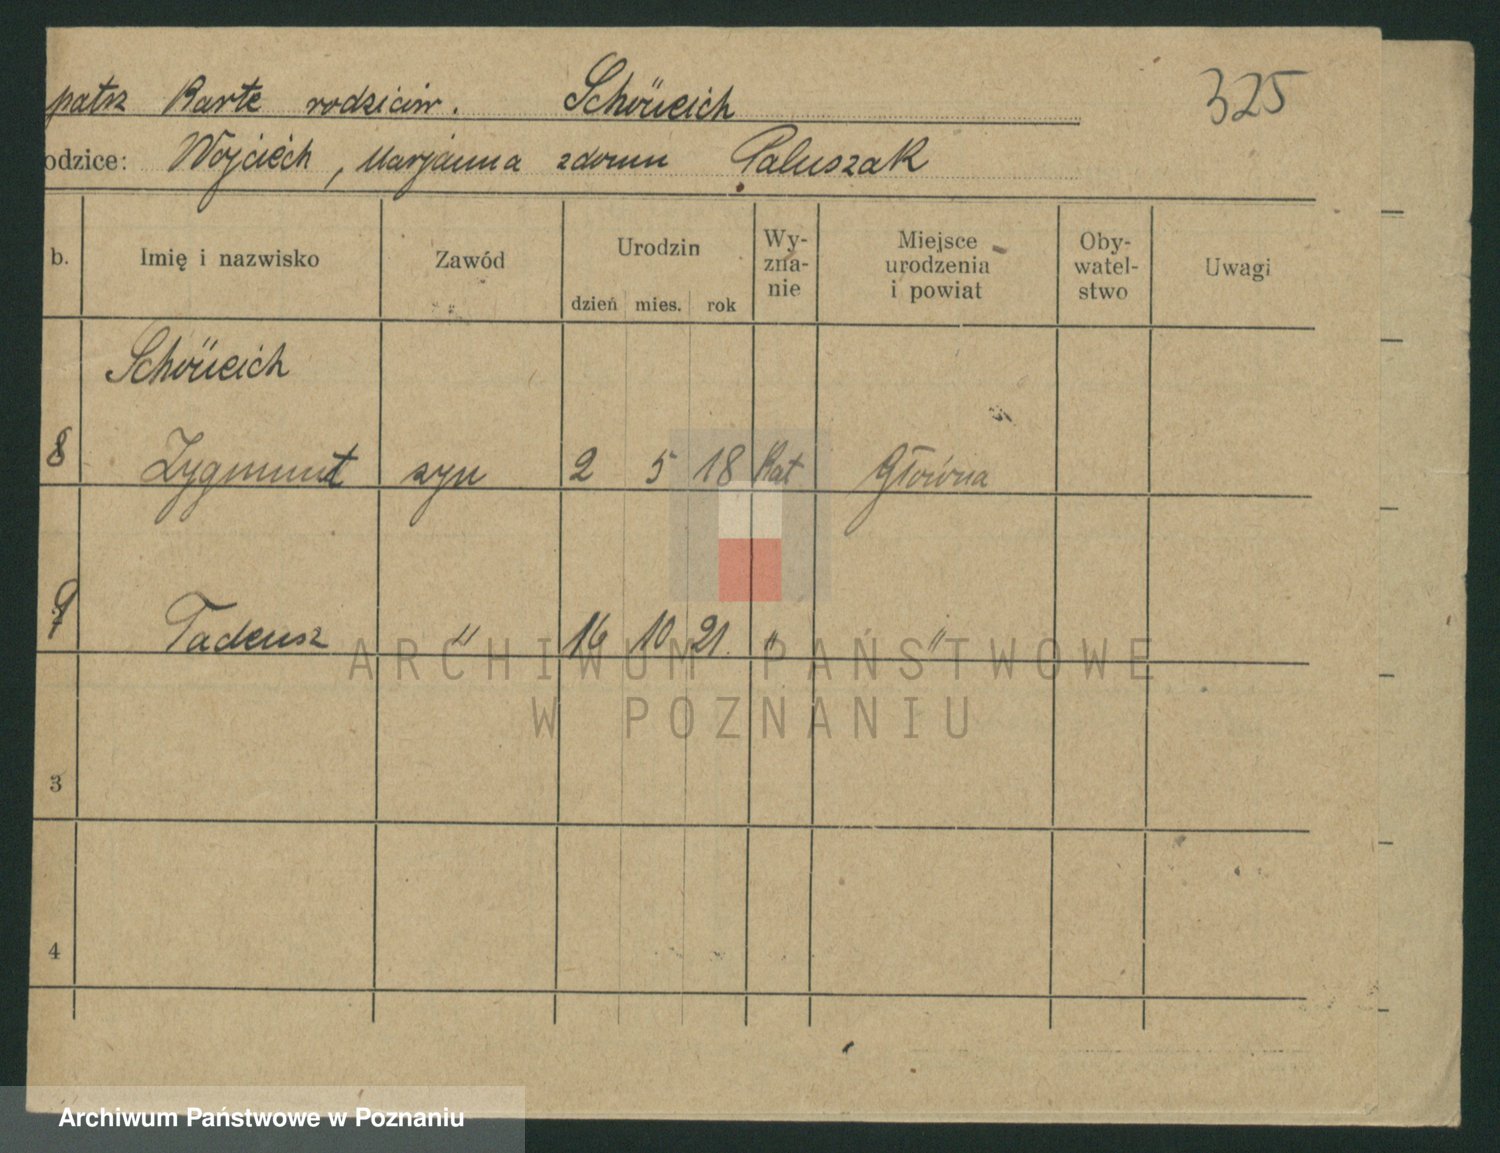 patrz Kartę rodziców. Schöneich 325
odzice: Wojciech, Marjanna zdomu Paluszak
b. Imię i nazwisko Zawód Urodzin dzień mies. rok Wy-zna-nie Miejsce urodzenia i powiat Oby-watel-stwo Uwagi
Schöneich
8 Zygmunt syn 2 5 18 Kat Główna
9 Tadeusz " 16 10 21. " "
3
4
ARCHIWUM PAŃSTWOWE
W POZNANIU
Archiwum Państwowe w Poznaniu